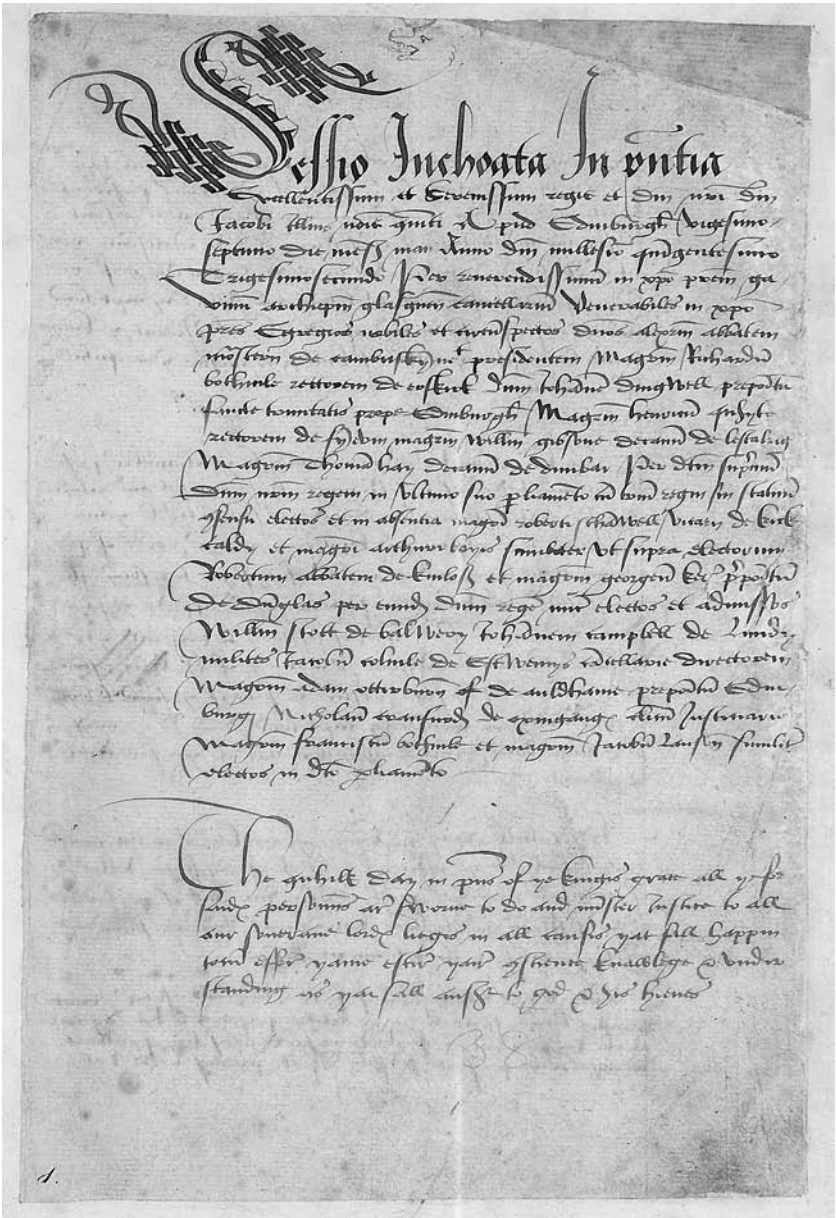 Sessio Inchoata In pñtia
Excellentissim et Serenissim regis et dm nri dm
Jacobi illius nōie quinti Apud Edinburgh vigesimo
septimo die mensis maii Anno dm millesio quingentesimo
Trigesimosecundo Per reverendissimum in xpo prem ga
vinum archiepm glasguen cancellarium Venerabiles in xpo
pres Egregios nobiles et circūspectos dnos alexm abbatem
mostern de cambuskynnet presidentem Magrm Richardū
bothuile rectorem de eskirk Dnm Johānem dingwell prepositū
sancte trinitatis prope Edinburgh Magrm henricum quhyte
rectorem de fyevin magrm willm gibsone decanū de lestalrig
Magrm Thomā hay decanū de dunbar Per dictm supmū
dnm nrm regem in ultimo suo pliamento cū triū regni sui statuū
9sensu electos et in absentia magri roberti schanwell vicarii de kirk
caldy et magri arthuri boyis similiter ut supra electorum
Robertum abbatem de kinloss et magrm georgeū ker prepositū
de dunglas per eundē dnm regē nūc electos et admissos
Willm scott de balwery Johānem campbell de lundy
milites Jacobū colvile de Estwemys cācellarie directorem
Magrm adam otterburn de auldhame prepositū Edin
burgi Nicholaū craufurd de oxingangs clericū Justiciarie
Magrm franciscū bothuile et magrm Jacobū lausone similit
electos in dto pliamēto
The quhilk day in pñs of ye kingis grace all ye for
saidꝭ personis ar sworne to do and mister Justice to all
our souerane lordꝭ liegis in all causis yat sall happin
to cū effor yame eftir yair 9science knawlege & undir
standing as yai sall ansꝛ to god & his hienes
1.